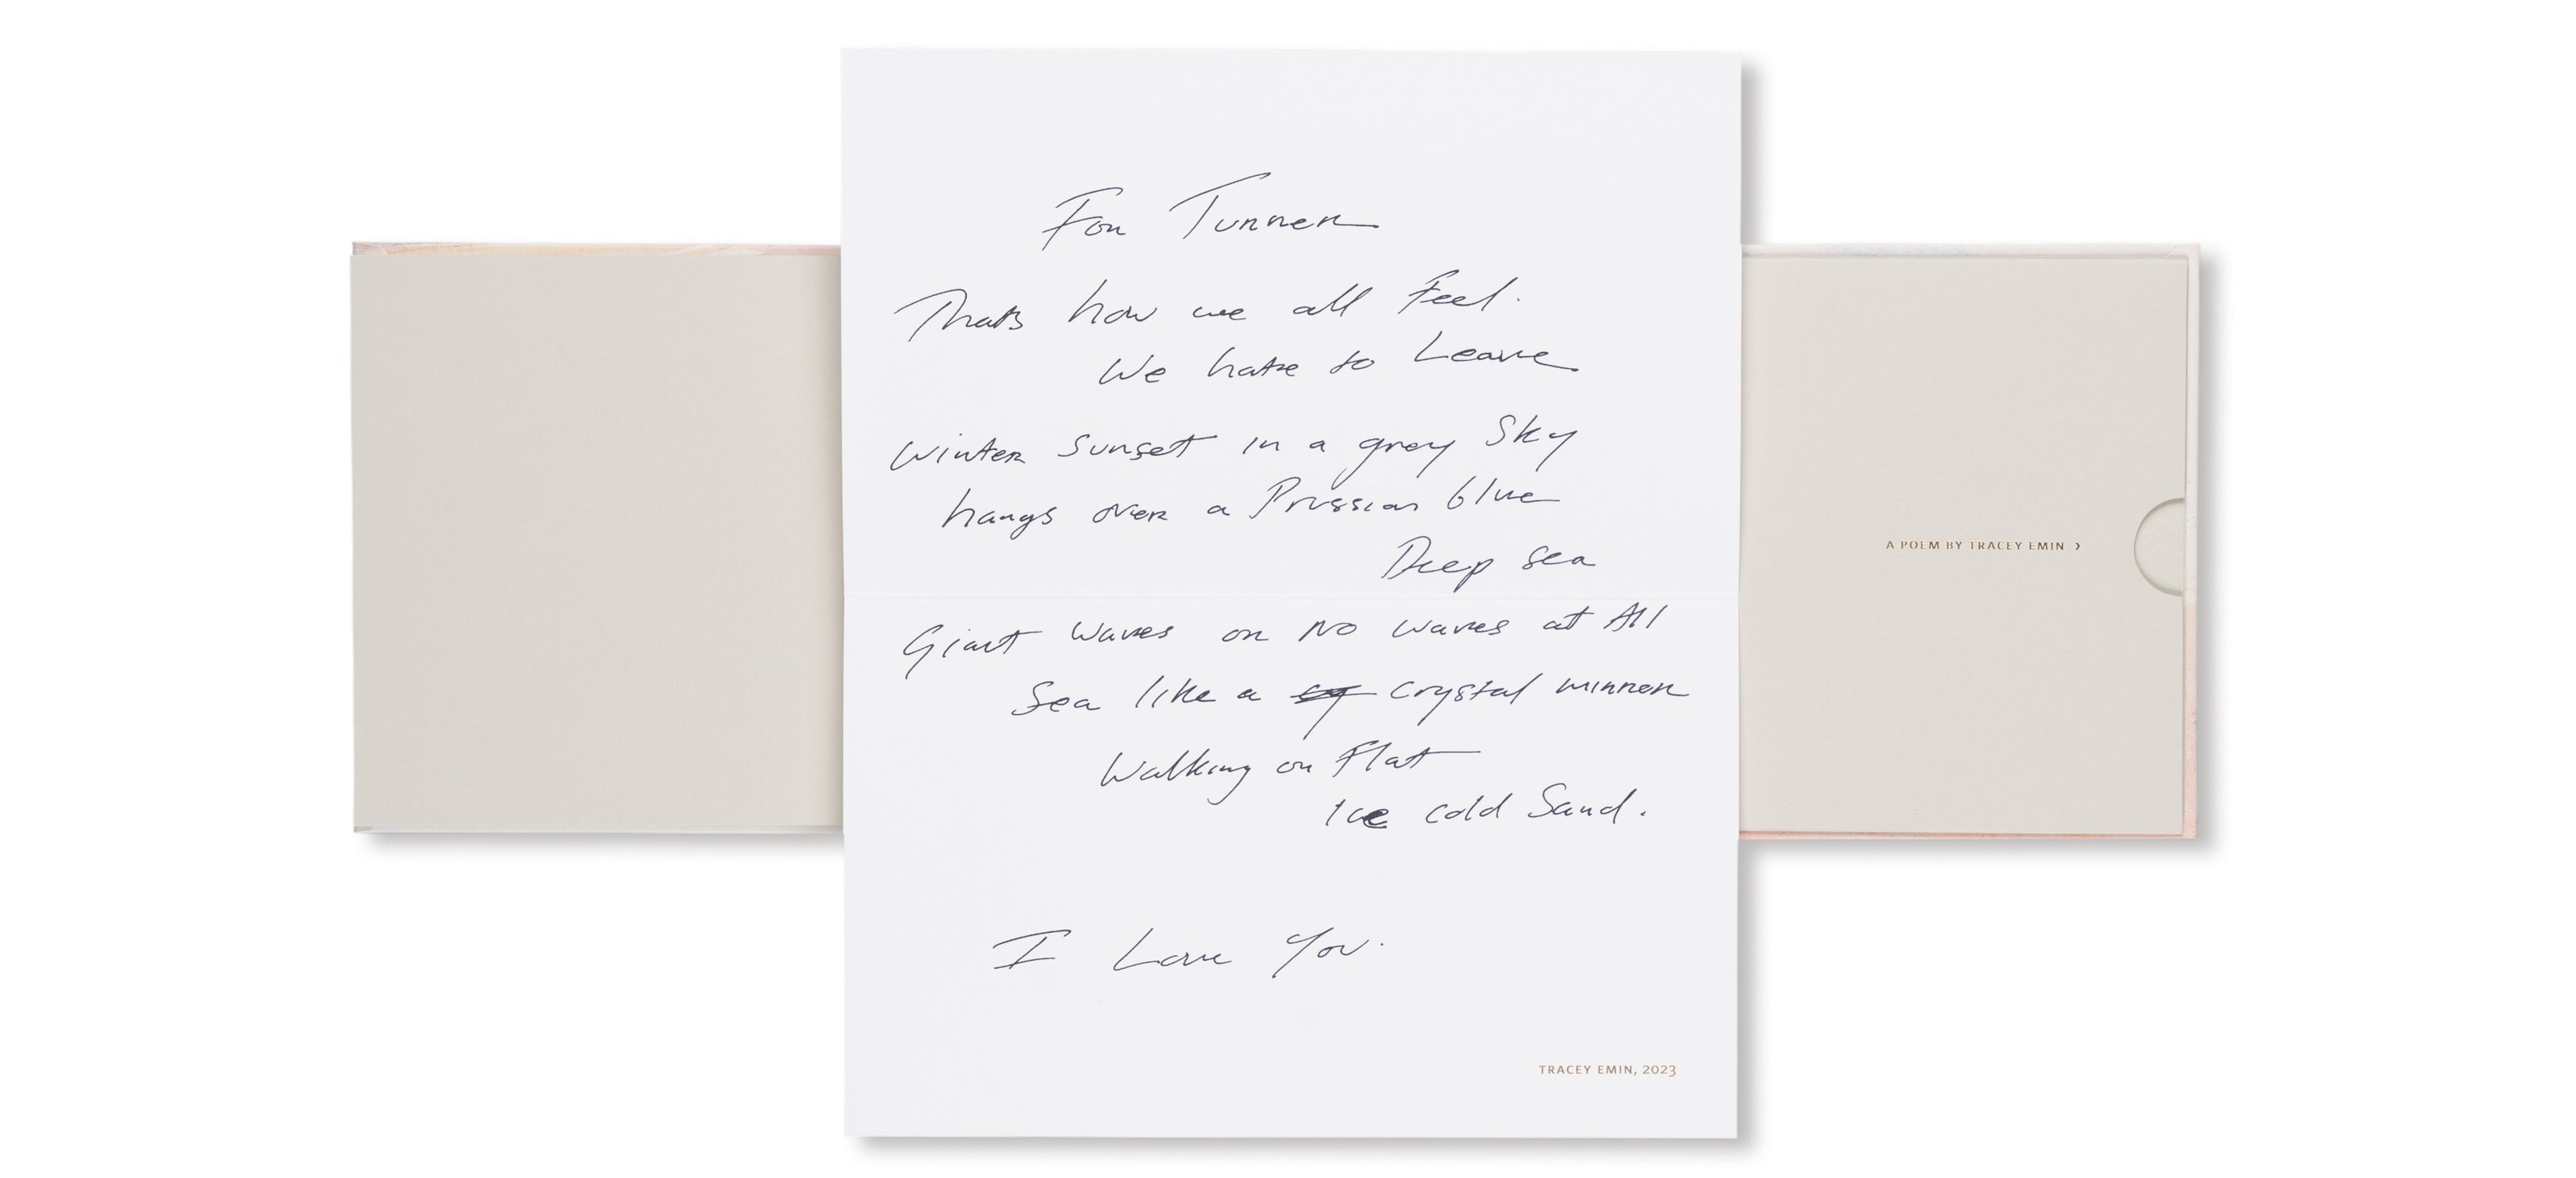 For Turner
Thats how we all Feel.
We hate to Leave
Winter Sunset in a grey Sky
hangs over a Prussian blue
Deep sea
Giant waves or No waves at All
Sea like a crystal mirror
Walking on Flat
Ice cold Sand.
I Love You.
TRACEY EMIN, 2023
A POEM BY TRACEY EMIN ›